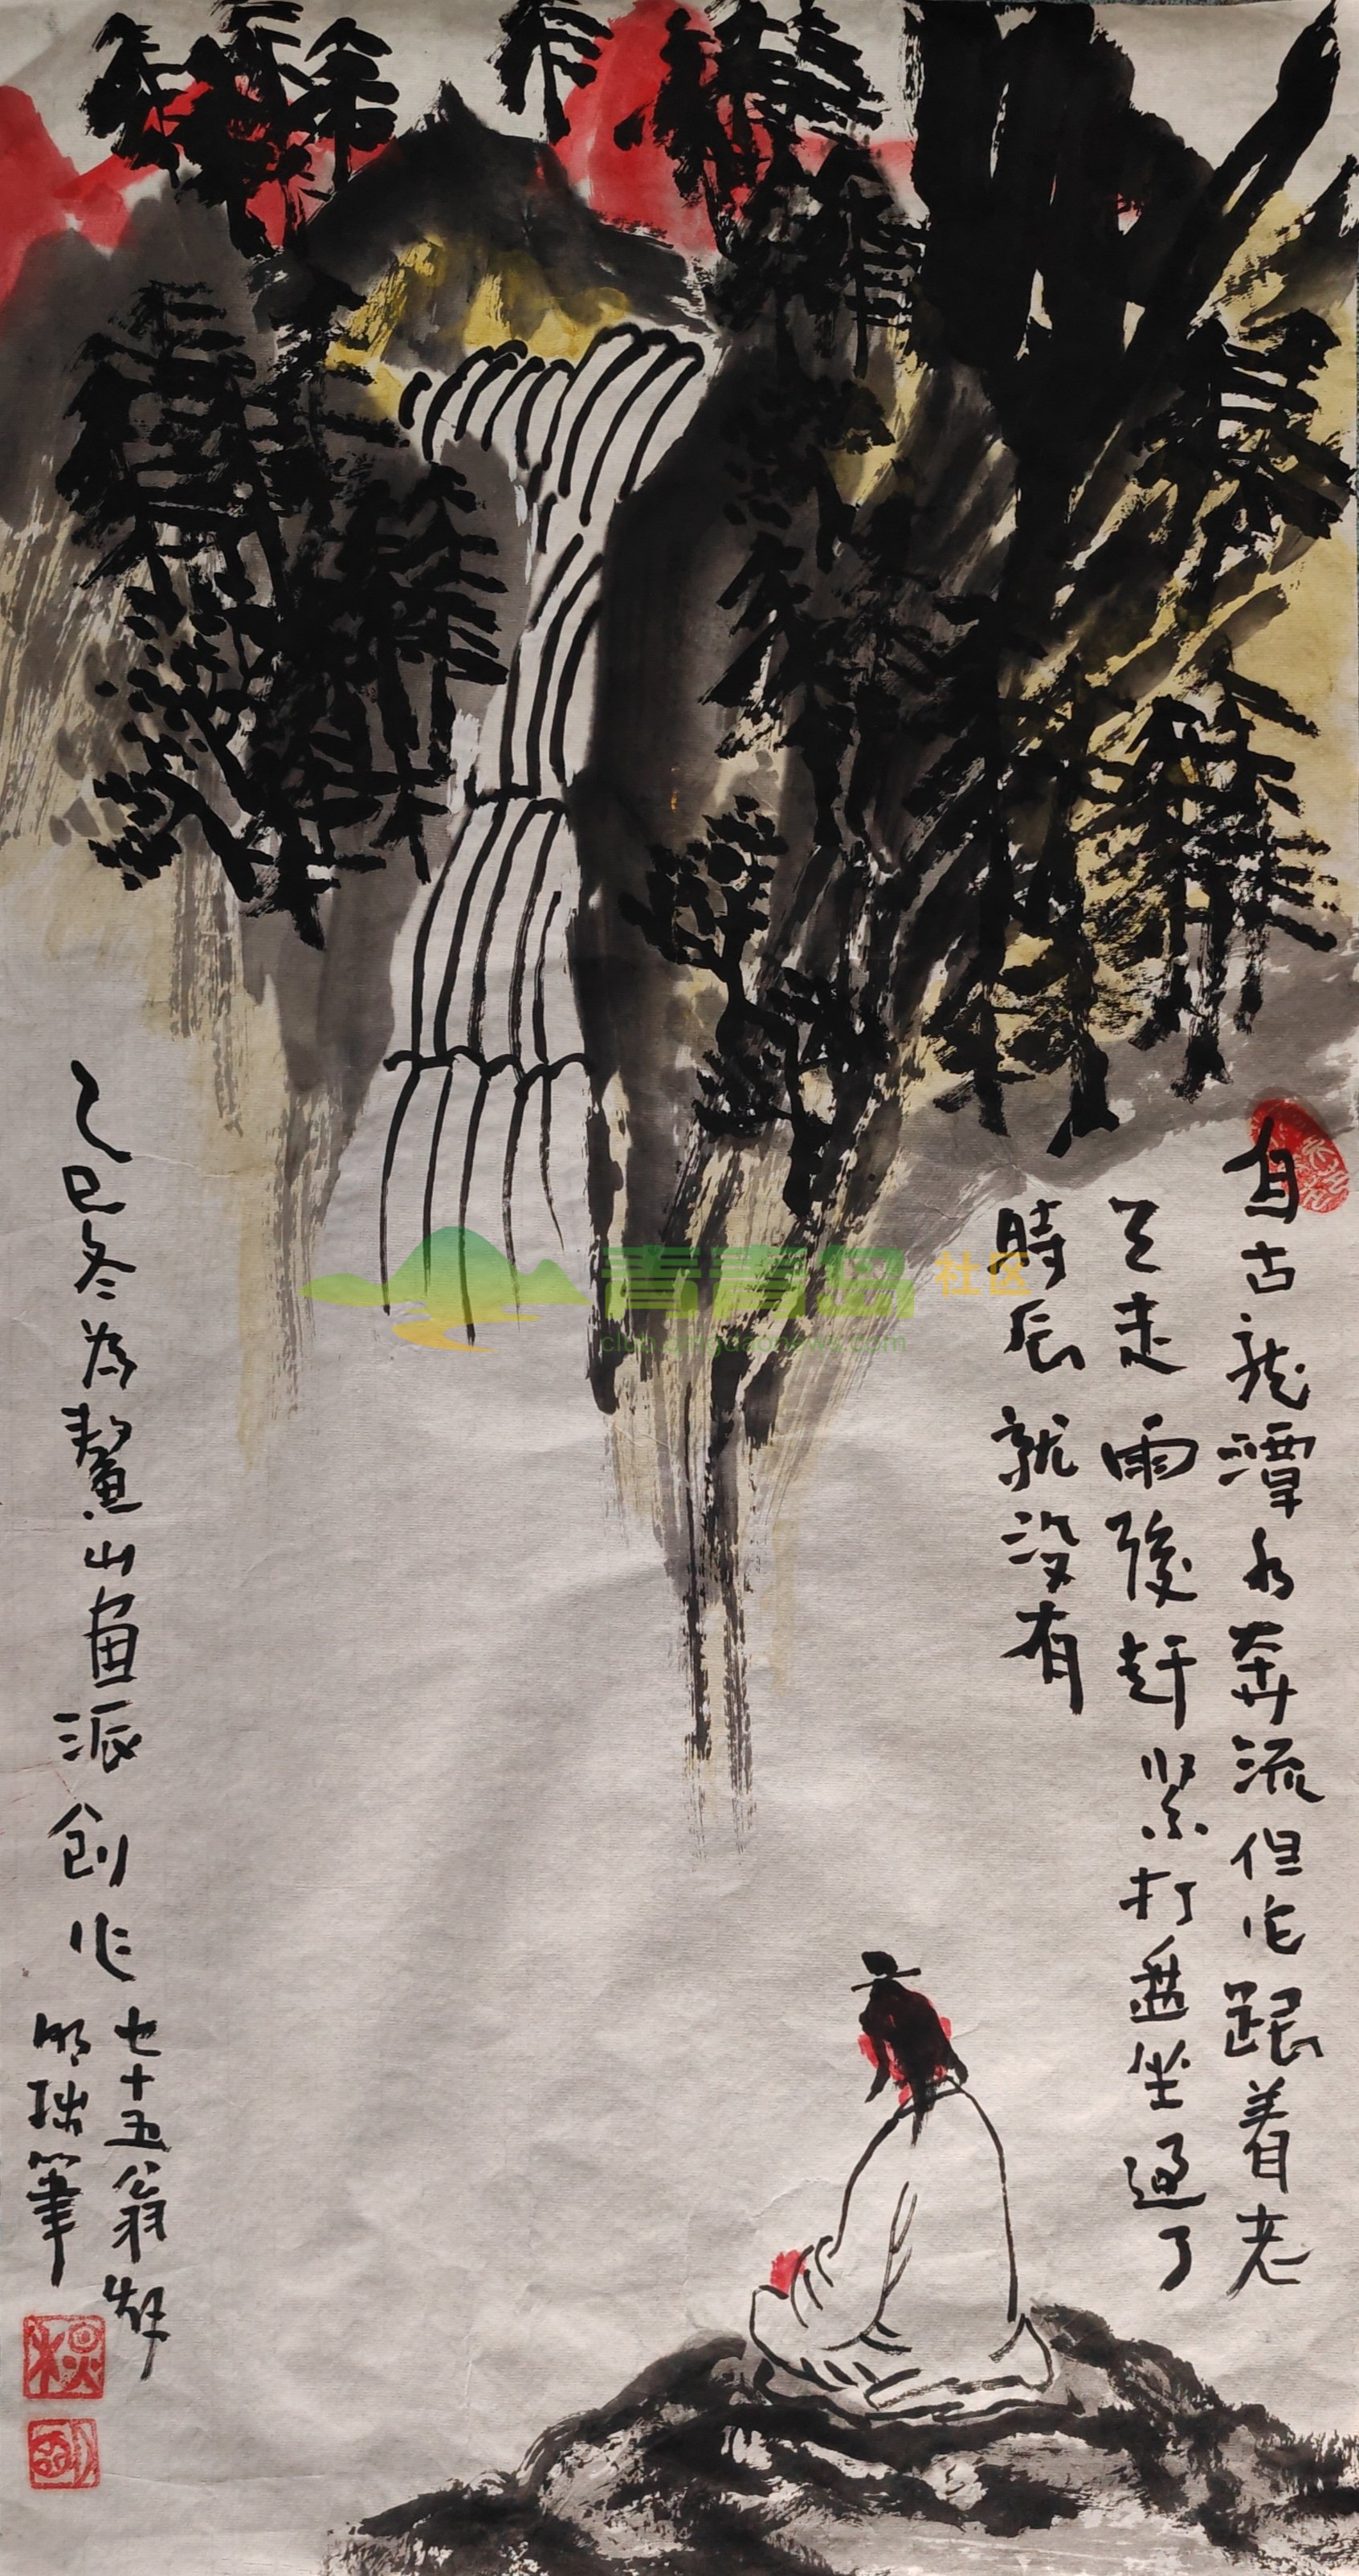 自古龙潭水奔流但它跟着老
天走雨後赶紧打盘坐过了
時辰就没有
乙巳冬为鰲山画派创作
七十五翁
明瑞筆
青青岛社区
club.qingdaonews.com